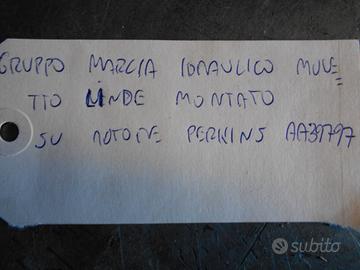 GRUPPO MARCIA IDRAULICO MULE=
TTO LINDE MONTATO
SU MOTORE PERKINS AA39797
subito